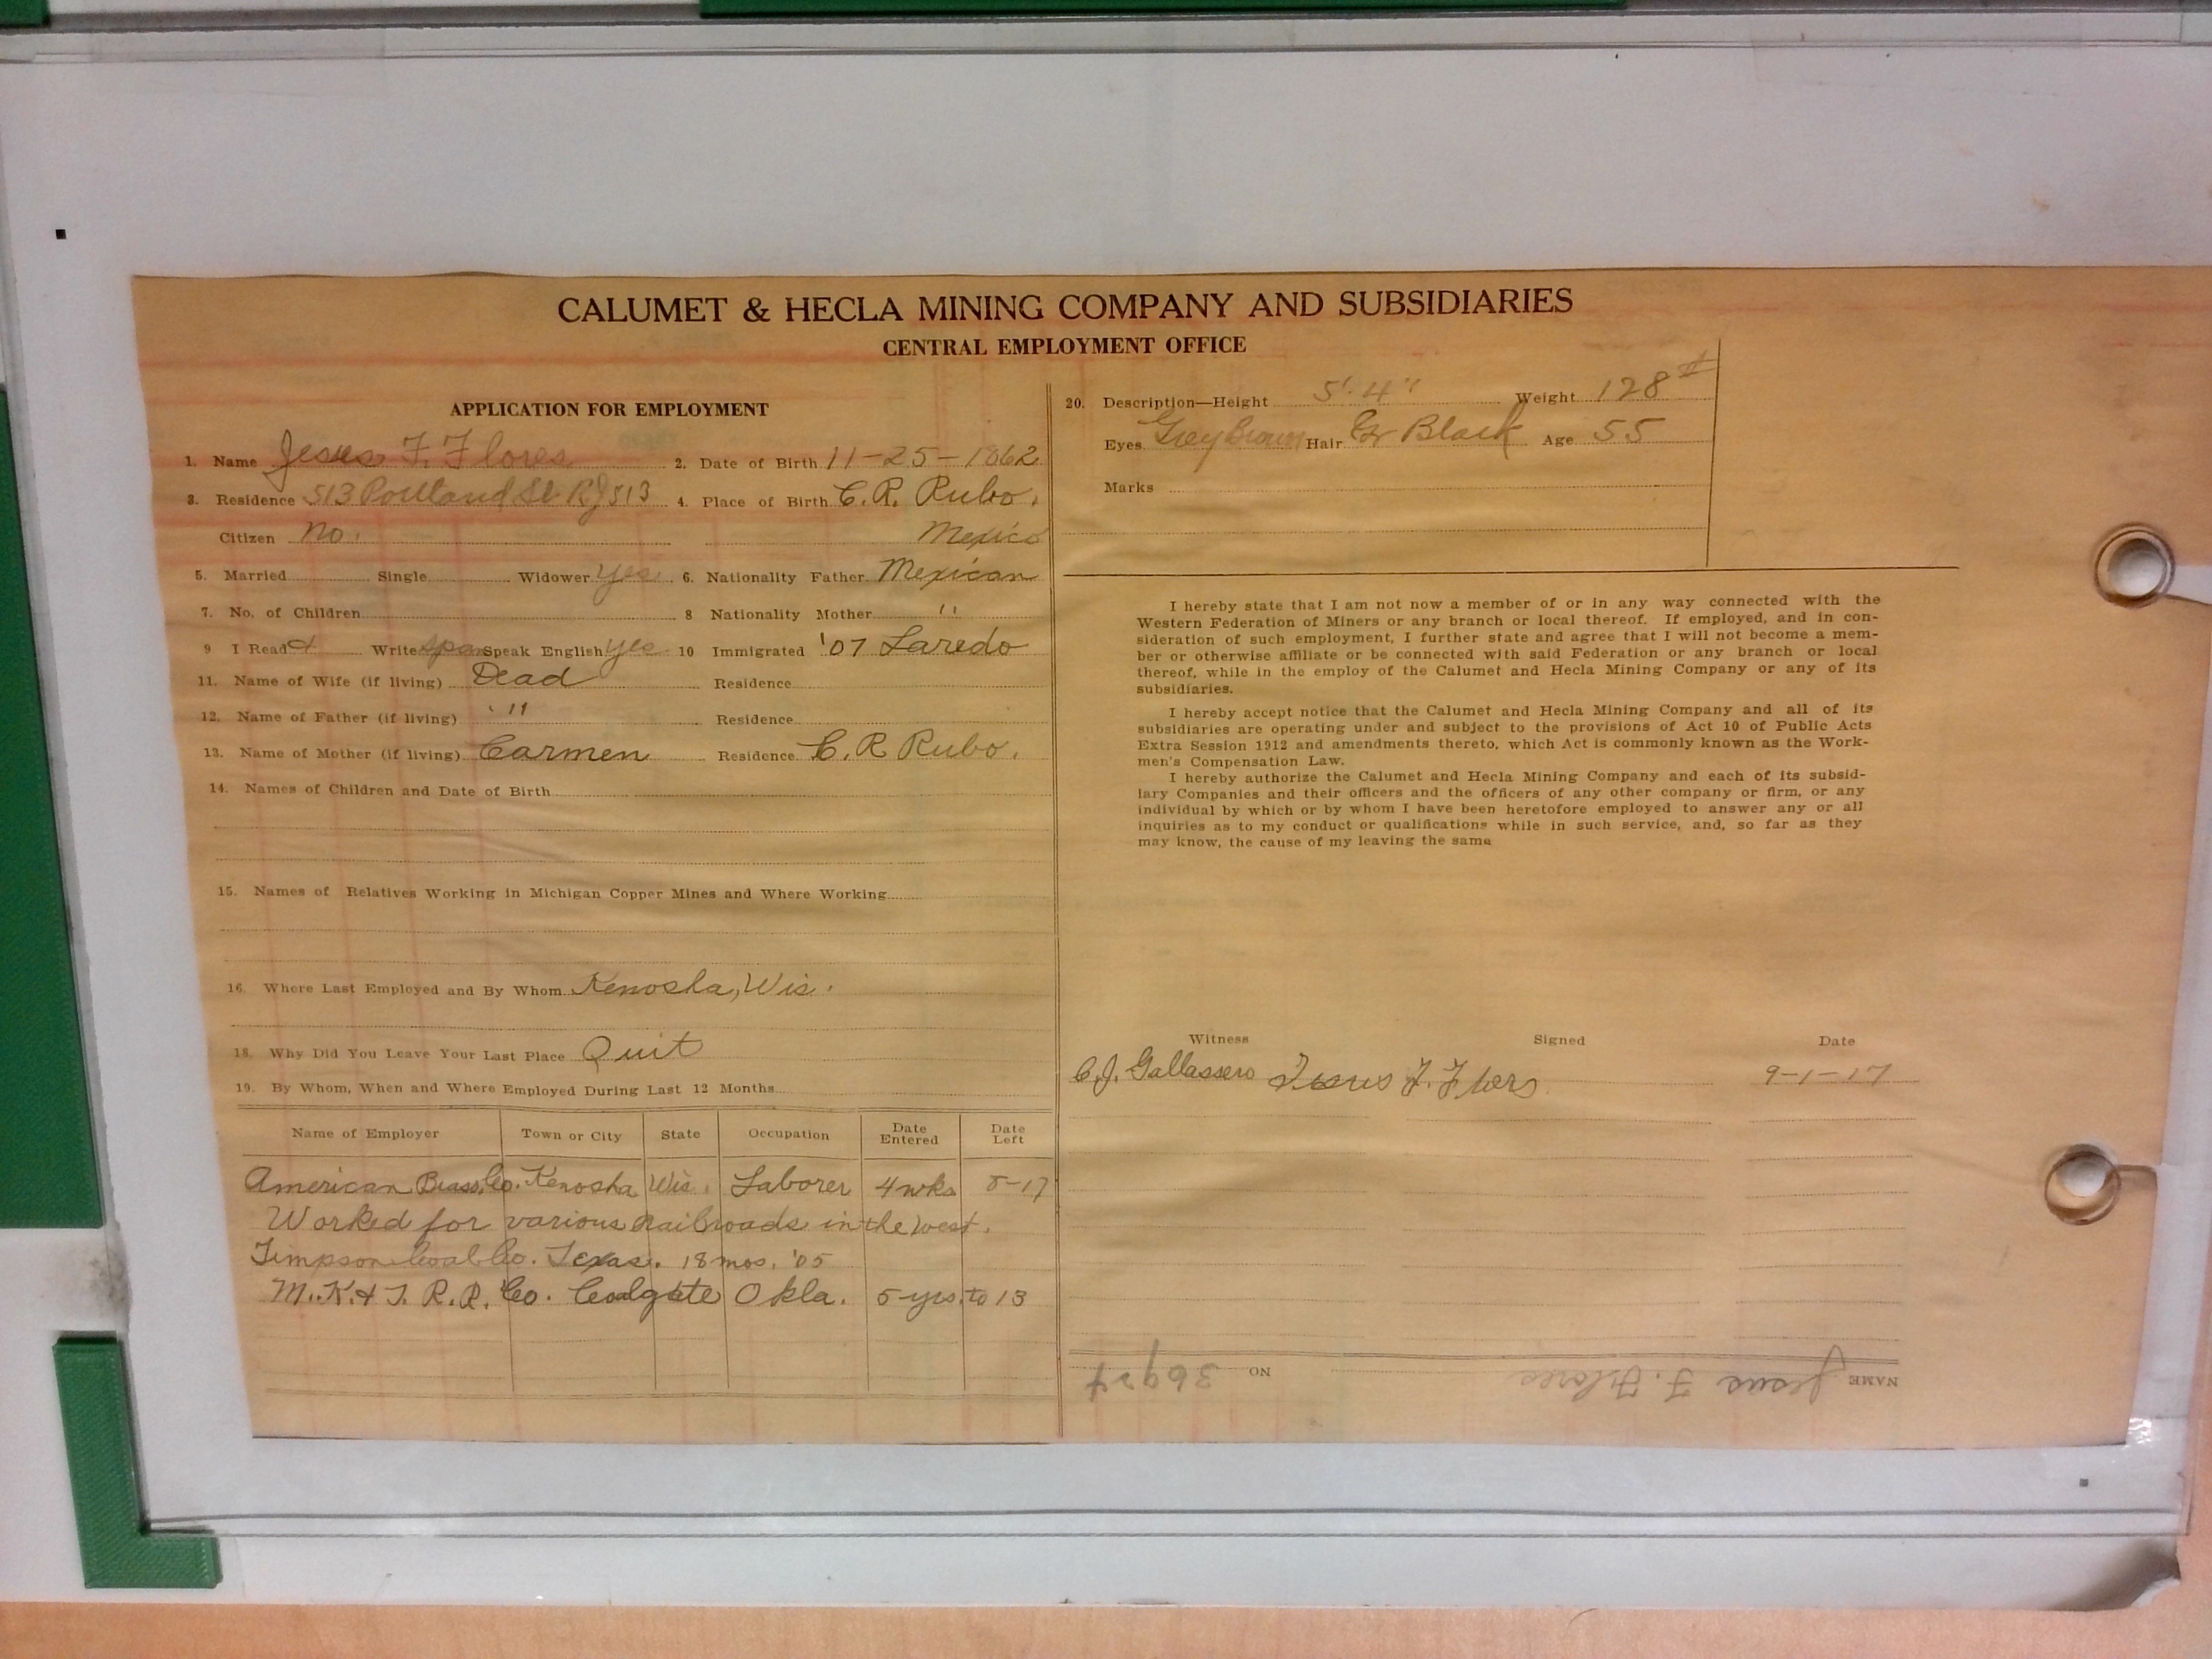 CALUMET & HECLA MINING COMPANY AND SUBSIDIARIES
CENTRAL EMPLOYMENT OFFICE
APPLICATION FOR EMPLOYMENT
1. Name Jesus F. Flores 2. Date of Birth 11-25-1862
3. Residence 513 Portland St. 513 4. Place of Birth C. R. Rubo.
Citizen no. Mexico
5. Married Single Widower yes 6. Nationality Father Mexican
7. No. of Children 8 Nationality Mother "
9 I Read & Write Span Speak English yes 10 Immigrated '07 Laredo
11. Name of Wife (if living) Dead Residence
12. Name of Father (if living) " Residence
13. Name of Mother (if living) Carmen Residence C. R Rubo.
14. Names of Children and Date of Birth
15. Names of Relatives Working in Michigan Copper Mines and Where Working
16. Where Last Employed and By Whom Kenosha, Wis.
18. Why Did You Leave Your Last Place Quit
19. By Whom, When and Where Employed During Last 12 Months
Name of Employer Town or City State Occupation Date Entered Date Left
American Brass Co. Kenosha Wis. Laborer 4 wks 8-17
Worked for various railroads in the west.
Timpson Coal Co. Texas. 18 mos. '05
M. K. & T. R. R. Co. Coalgate Okla. 5 yrs. to 13
20. Description—Height 5'. 4" Weight 128 #
Eyes Grey Brown Hair Black Age 55
Marks
I hereby state that I am not now a member of or in any way connected with the
Western Federation of Miners or any branch or local thereof. If employed, and in con-
sideration of such employment, I further state and agree that I will not become a mem-
ber or otherwise affiliate or be connected with said Federation or any branch or local
thereof, while in the employ of the Calumet and Hecla Mining Company or any of its
subsidiaries.
I hereby accept notice that the Calumet and Hecla Mining Company and all of its
subsidiaries are operating under and subject to the provisions of Act 10 of Public Acts
Extra Session 1912 and amendments thereto, which Act is commonly known as the Work-
men's Compensation Law.
I hereby authorize the Calumet and Hecla Mining Company and each of its subsid-
iary Companies and their officers and the officers of any other company or firm, or any
individual by which or by whom I have been heretofore employed to answer any or all
inquiries as to my conduct or qualifications while in such service, and, so far as they
may know, the cause of my leaving the same
Witness Signed Date
C. J. Gallassero Jesus F. Flors 9-1-17
NAME Jesus F. Flores NO 36924